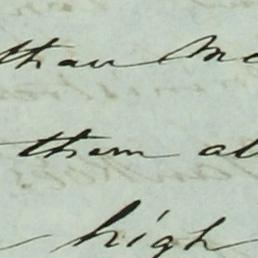 than Mc
them al
high